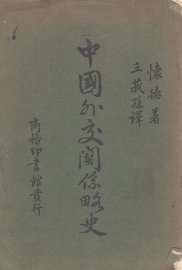 懷德著
王義孫譯
中國外交関係略史
商務印書館發行